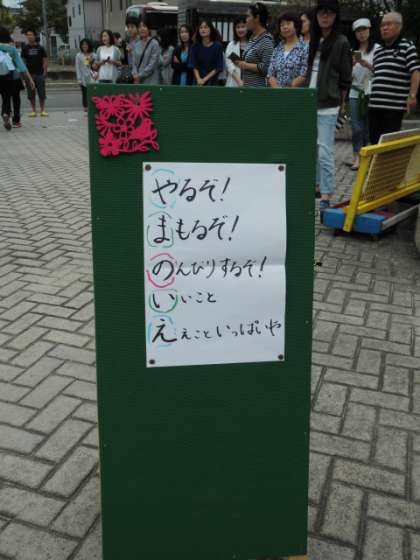 やるぞ!
まもるぞ!
のんびりするぞ!
いいこと
ええこといっぱいや